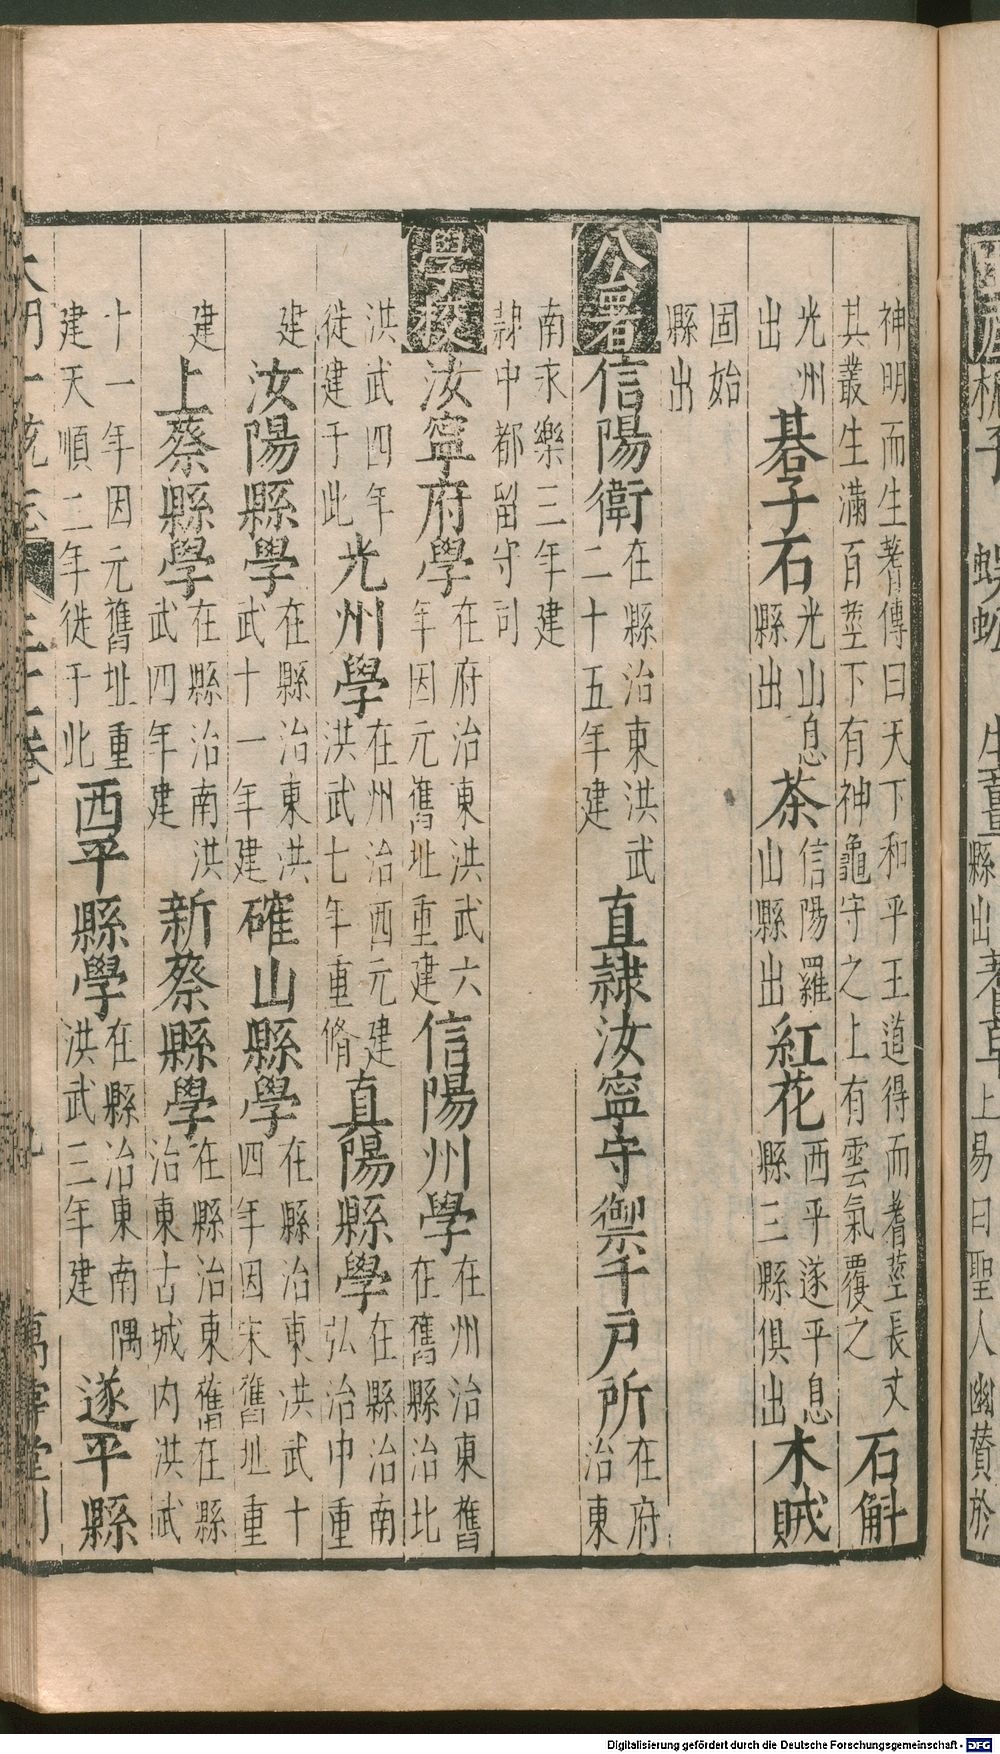 蜈蚣 生薑縣出蓍草上易曰聖人幽贊於
神明而生蓍傳曰天下和平王道得而蓍莖長丈其叢生滿百莖下有神龜守之上有雲氣覆之石斛
光州出碁子石光山息縣出茶信陽羅山縣出紅花西平遂平息縣三縣俱出木賊
固始縣出
公署信陽衛在縣治東洪武二十五年建直隷汝寧守禦千戶所在府治東
南永樂三年建隷中都留守司
學校汝寧府學在府治東洪武六年因元舊址重建信陽州學在州治東舊在舊縣治北
洪武四年徙建于此光州學在州治西元建洪武七年重脩真陽縣學在縣治南弘治中重
建汝陽縣學在縣治東洪武十一年建確山縣學在縣治東洪武十四年因宋舊址重
建上蔡縣學在縣治南洪武四年建新蔡縣學在縣治東舊在縣治東古城内洪武
十一年因元舊址重建天順二年徙于此西平縣學在縣治東南隅洪武三年建遂平縣
大明一統志 三十一卷 九 萬壽堂刊
Digitalisierung gefördert durch die Deutsche Forschungsgemeinschaft - DFG